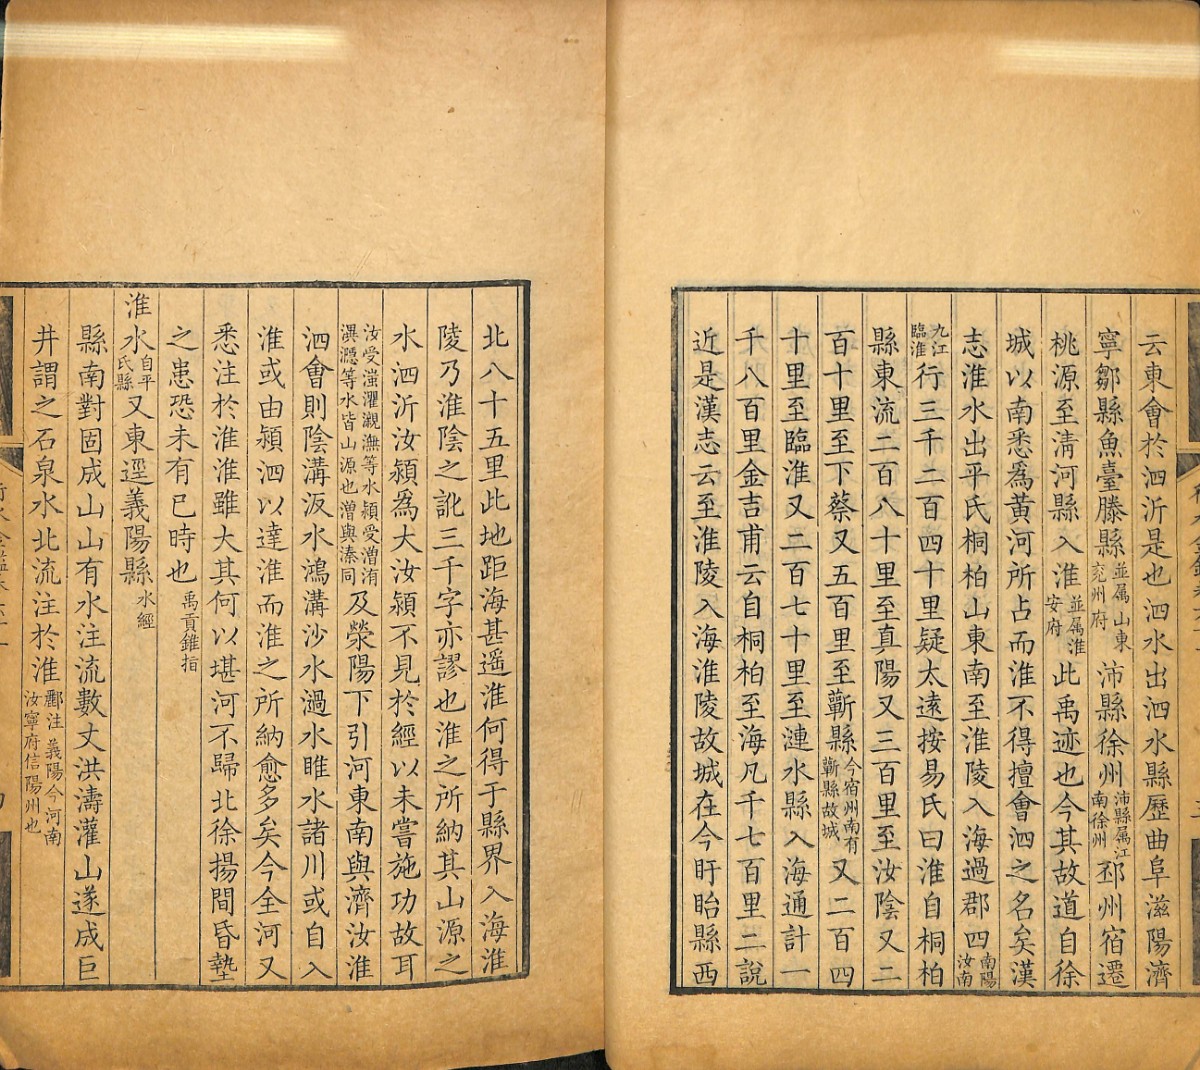 云東會於泗沂是也泗水出泗水縣歷曲阜滋陽濟
寧鄒縣魚臺滕縣並属山東兖州府沛縣徐州沛縣属江南徐州邳州宿遷
桃源至淸河縣入淮並属淮安府此禹迹也今其故道自徐
城以南悉爲黄河所占而淮不得擅會泗之名矣漢
志淮水出平氏桐柏山東南至淮陵入海過郡四南陽汝南
九江臨淮行三千二百四十里疑太遠按易氏曰淮自桐柏
縣東流二百八十里至真陽又三百里至汝陰又二
百十里至下蔡又五百里至蘄縣今宿州南有蘄縣故城又二百四
十里至臨淮又二百七十里至漣水縣入海通計一
千八百里金吉甫云自桐柏至海凡千七百里二說
近是漢志云至淮陵入海淮陵故城在今盱眙縣西
北八十五里此地距海甚遥淮何得于縣界入海淮
陵乃淮陰之訛三千字亦謬也淮之所納其山源之
水泗沂汝潁為大汝潁不見於經以未嘗施功故耳
汝受滍灈灈潕等水潁受潧洧潩濦等水皆山源也潧與溱同及滎陽下引河東南與濟汝淮
泗會則陰溝汳水鴻溝沙水過水睢水諸川或自入
淮或由潁泗以達淮而淮之所納愈多矣今全河又
悉注於淮淮雖大其何以堪河不歸北徐揚間昏墊
之患恐未有已時也禹貢錐指
淮水自平氏縣又東逕義陽縣水經
縣南對固成山山有水注流數丈洪濤灌山遂成巨
井謂之石泉水北流注於淮酈注義陽今河南汝寧府信陽州也